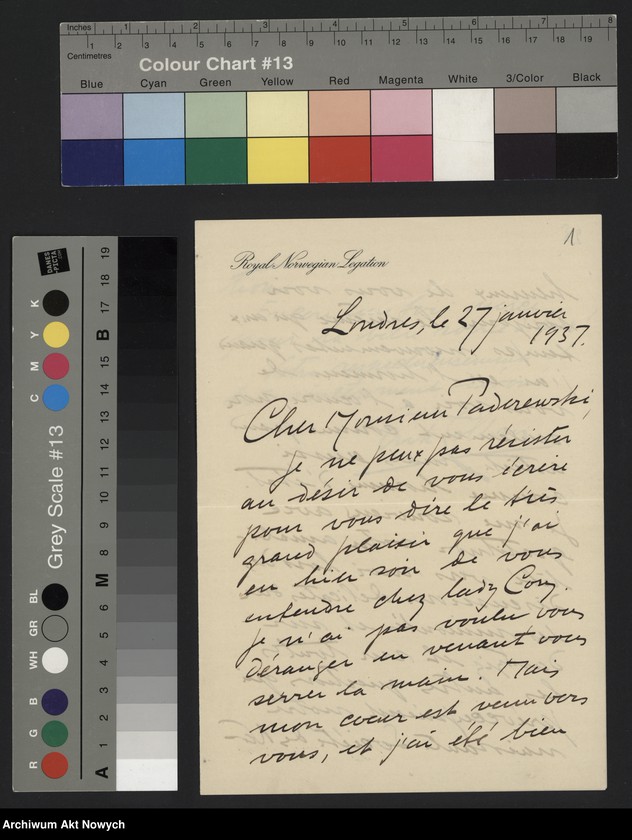 Inches 1 2 3 4 5 6 7 8
Centimetres 1 2 3 4 5 6 7 8 9 10 11 12 13 14 15 16 17 18 19
Colour Chart #13
Blue Cyan Green Yellow Red Magenta White 3/Color Black
Grey Scale #13
C M Y K
R G B WH GR BL
A 1 2 3 4 5 6 M 8 9 10 11 12 13 14 15 B 17 18 19
DANES
PICTA
1
Royal Norwegian Legation
Londres, le 27 janvier
1937.
Cher Monsieur Paderewski,
je ne peux pas résister
au désir de vous écrire
pour vous dire le très
grand plaisir que j'ai
eu hier soir de vous
entendre chez lady Cory.
Je n'ai pas voulu vous
déranger en venant vous
serrer la main. Mais
mon coeur est venu vers
vous, et j'ai été bien
Archiwum Akt Nowych